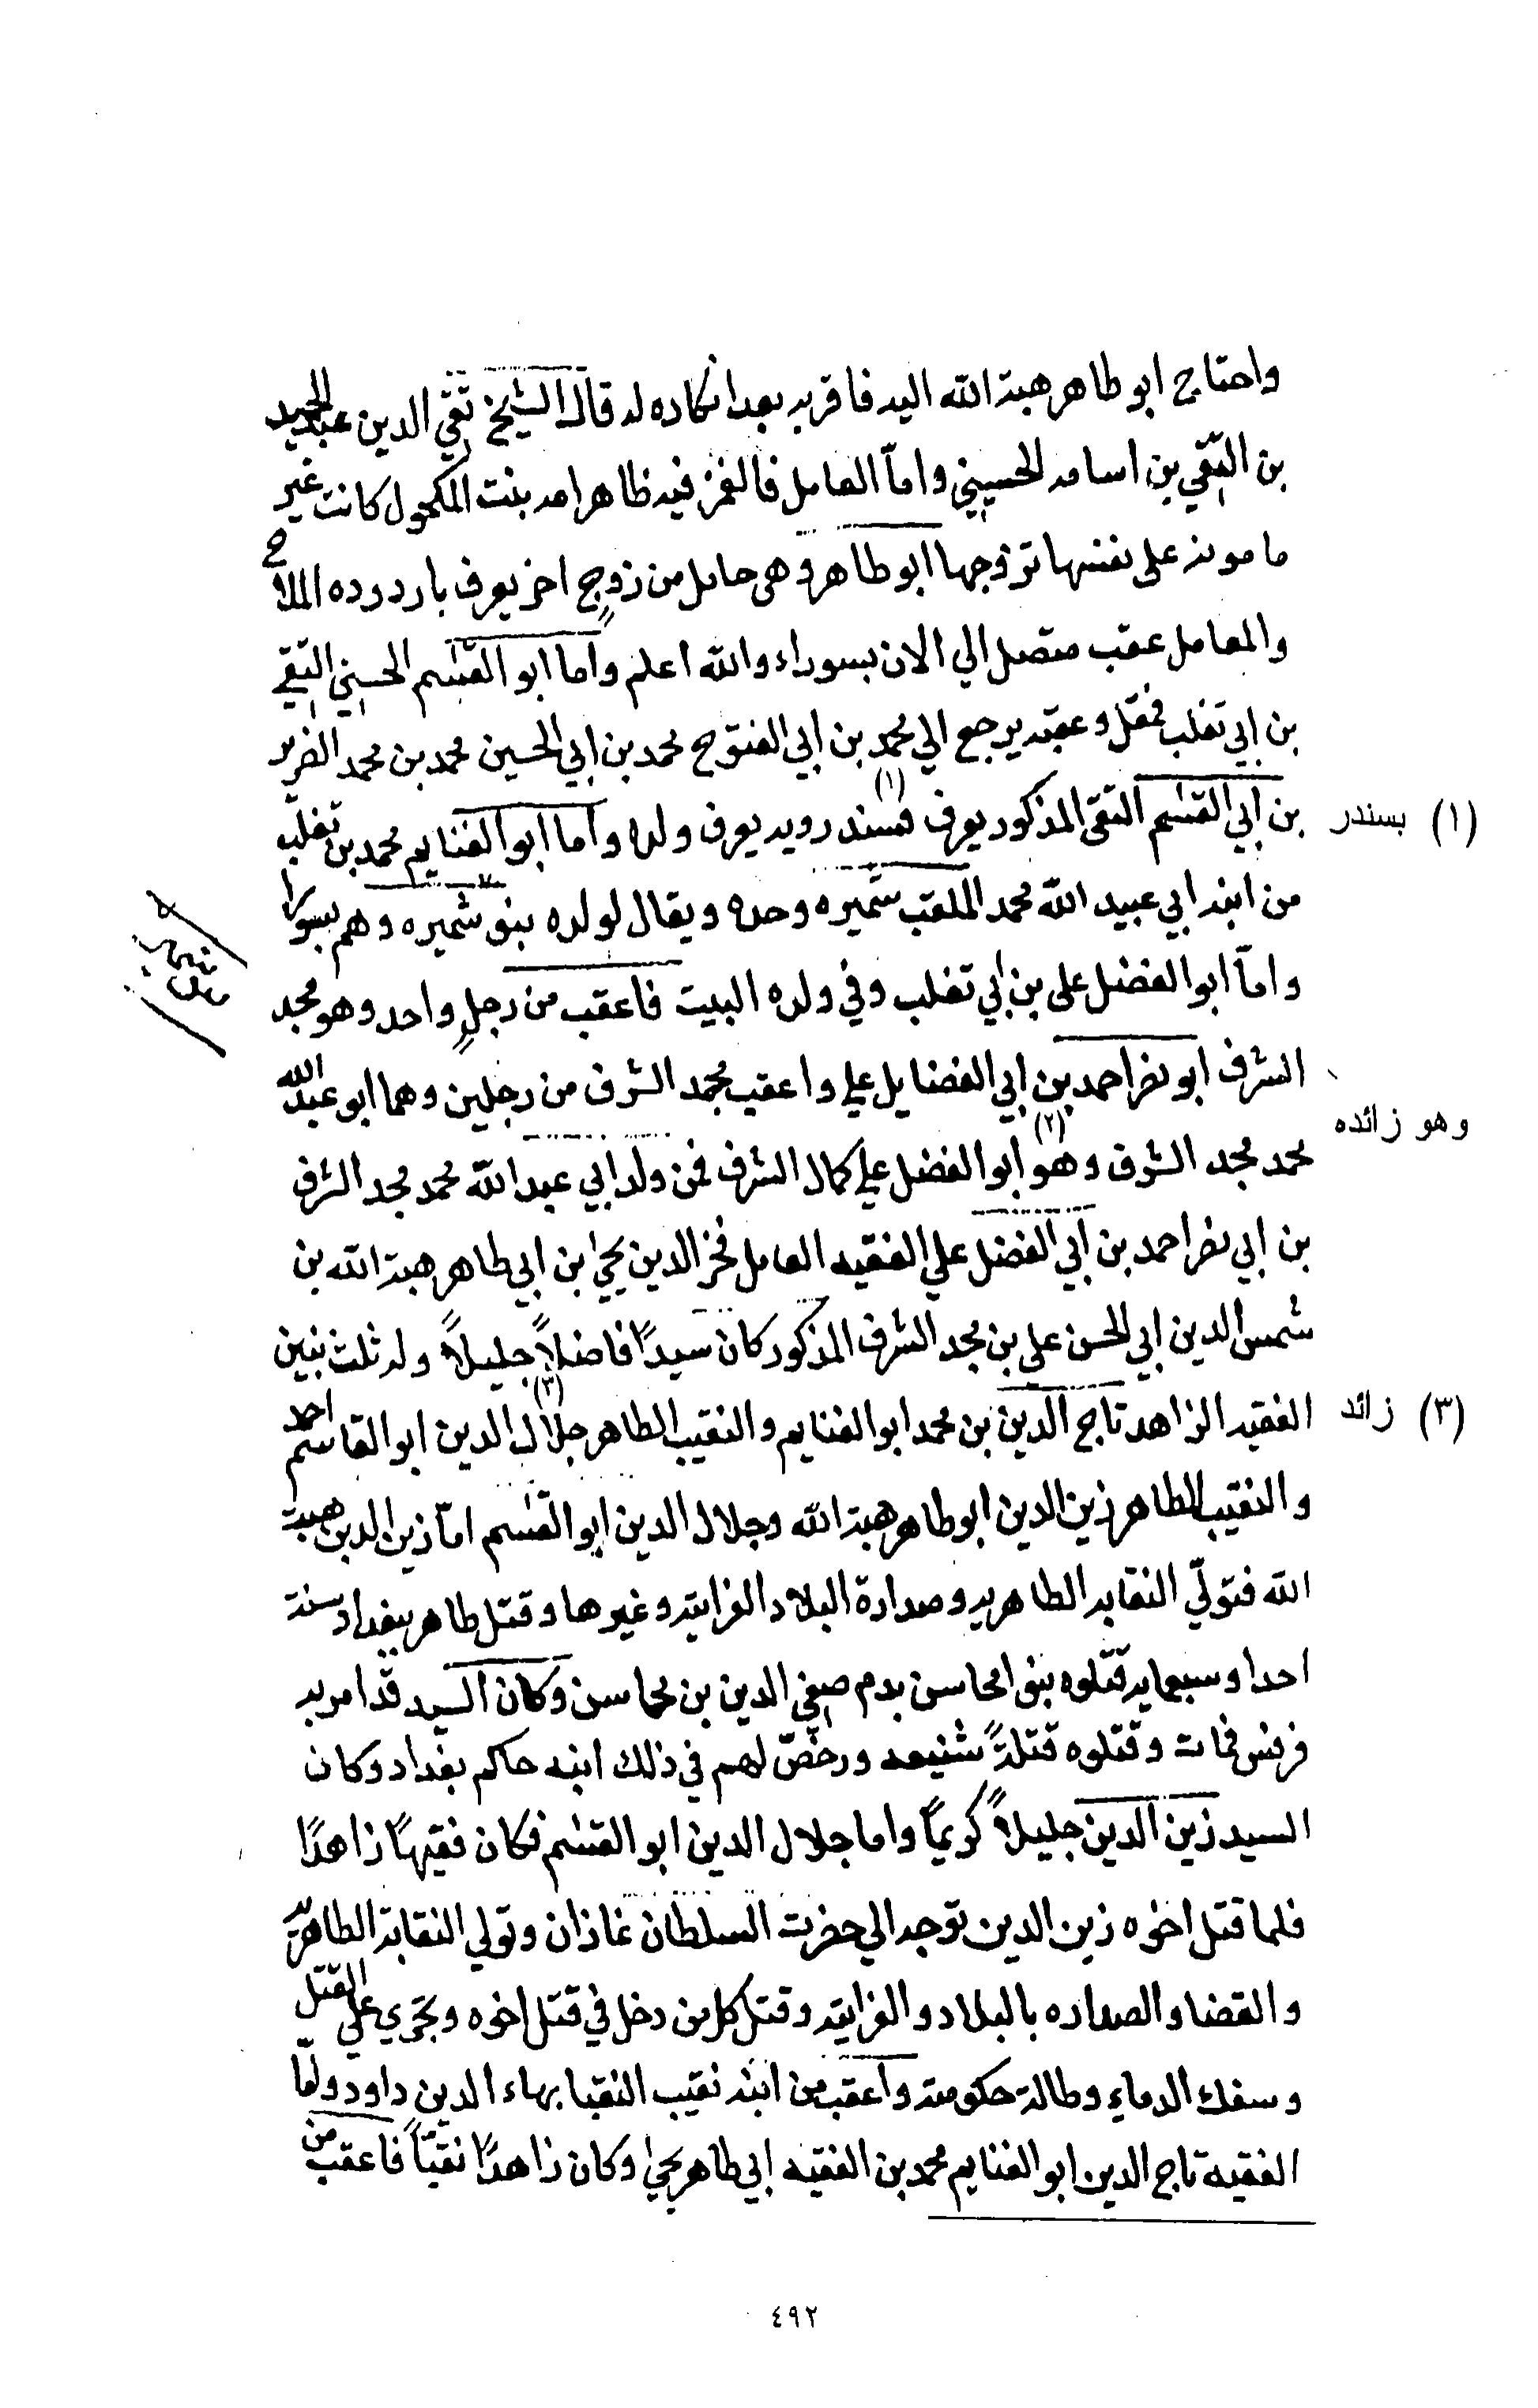 واحتاج ابو طاهر هبة الله اليه فاقر به بعد انكاره له قال الشيخ تقي الدين عبد الحميد
بن التقي بن اسامه الحسيني واما العامل فالغمز فيه ظاهر امه بنت المكحول كانت غير
مامونه على نفسها تزوجها ابو طاهر وهى حامل من زوج اخر يعرف بار دوده الملاح
والمعامل عقب متصل الي الان بسوراء والله اعلم واما ابو القسم الحسيني التقي
بن ابي تغلب فمقل وعقبه يرجع الي محمد بن ابي الفتوح محمد بن ابي الحسين محمد بن محمد الضرير
بن ابي القسم التقى المذكور يعرف بسندر (١) وبه يعرف ولده واما ابو الغنايم محمد بن تغلب
(١) بسندر
من ابنه ابي عبيد الله محمد الملقب شميره وحده ويقال لولده بنو شميره وهم بسورا
واما ابو الفضل على بن ابي تغلب وفي ولده البيت فاعقب من رجل واحد وهو مجد
الشرف ابو نصر احمد بن ابي الفضايل علي واعقب مجد الشرف من رجلين وهما ابو عبد الله
محمد مجد الشرف وهو (٢) ابو الفضل علي كمال الشرف فمن ولد ابي عبد الله محمد مجد الشرف
وهو زائده
بن ابي نصر احمد بن ابي الفضل علي الفقيه العامل فخر الدين يحيى ابن ابي طاهر هبة الله بن
شمس الدين ابي الحسن علي بن مجد الشرف المذكور كان سيدًا فاضلاً جليلاً وله ثلث بنين
الفقيه الزاهد تاج الدين بن محمد ابو الغنايم والنقيب الطاهر جلال (٣) الدين ابو القاسم احمد
(٣) زائد
والنقيب الطاهر زين الدين ابو طاهر هبة الله وجلال الدين ابو القسم اما زين الدين هبة
الله فتولي النقابه الطاهريه وصدارة البلاد الفراتيه وغيرها وقتل ظاهر بغداد سنة
احدا وسبعمايه قتلوه بنو المحاسن بدم صفي الدين بن محاسن وكان السيد قد امر به
فرفس فمات وقتلوه قتلةً شنيعه ورخص لهم في ذلك ابنه حاكم بغداد وكان
السيد زين الدين جليلاً كريماً واما جلال الدين ابو القسم فكان فقيهًا زاهدًا
فلما قتل اخوه زين الدين توجه الي حضرت السلطان غازان وتولي النقابة الطاهريه
والقضا والصداره بالبلاد والفراتيه وقتل كل من دخل في قتل اخوه وتجري على القتل
وسفك الدماء وطالة حكومته واعقب من ابنه نقيب النقبا بهاء الدين داود واما
الفقيه تاج الدين ابو الغنايم محمد بن الفقيه ابي طاهر يحيى وكان زاهدًا نقيًا فاعقب من
٤٩٢